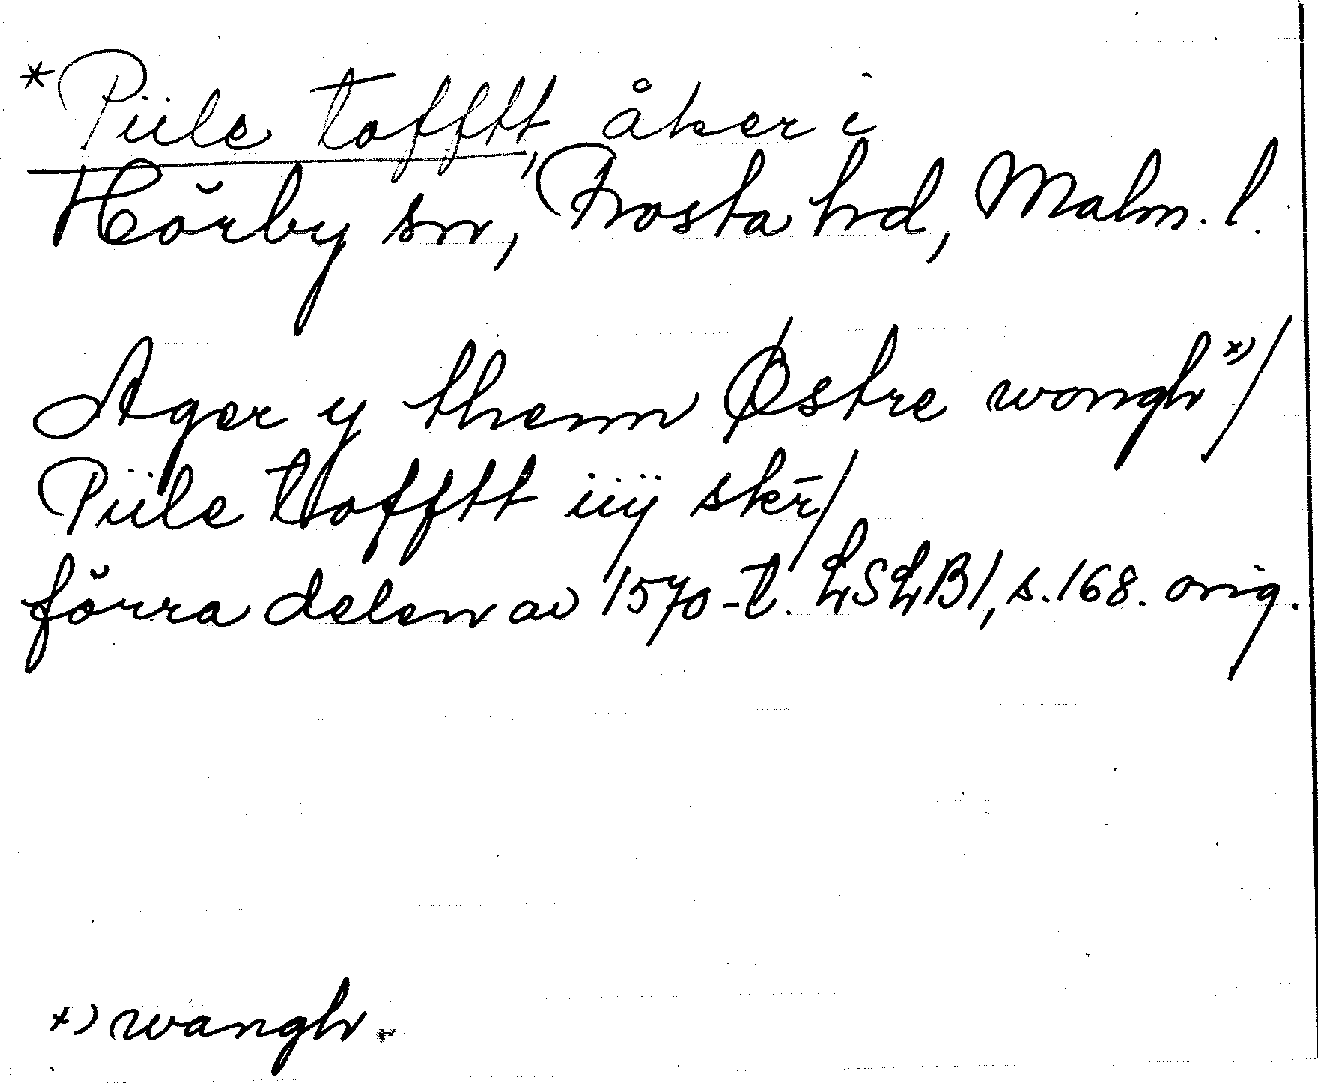 *Piile tofftt, åker i
Hörby sn, Frosta hd, Malm. l.
Ager y them Østre wongh*)/
Piile tofftt iiij skr̄/
förra delen av 1570-t. LSLB1, s. 168. orig.
*) wangh.